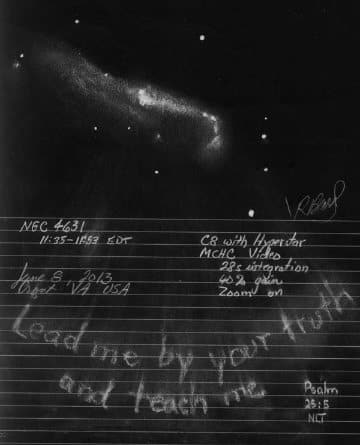 NGC 4631
11:35-11:53 EDT
June 8, 2013
VA USA
C8 with Hyperstar
MCHC Video
28s integration
40% gain
Zoom on
Lead me by your truth
and teach me
Psalm
25:5
NLT